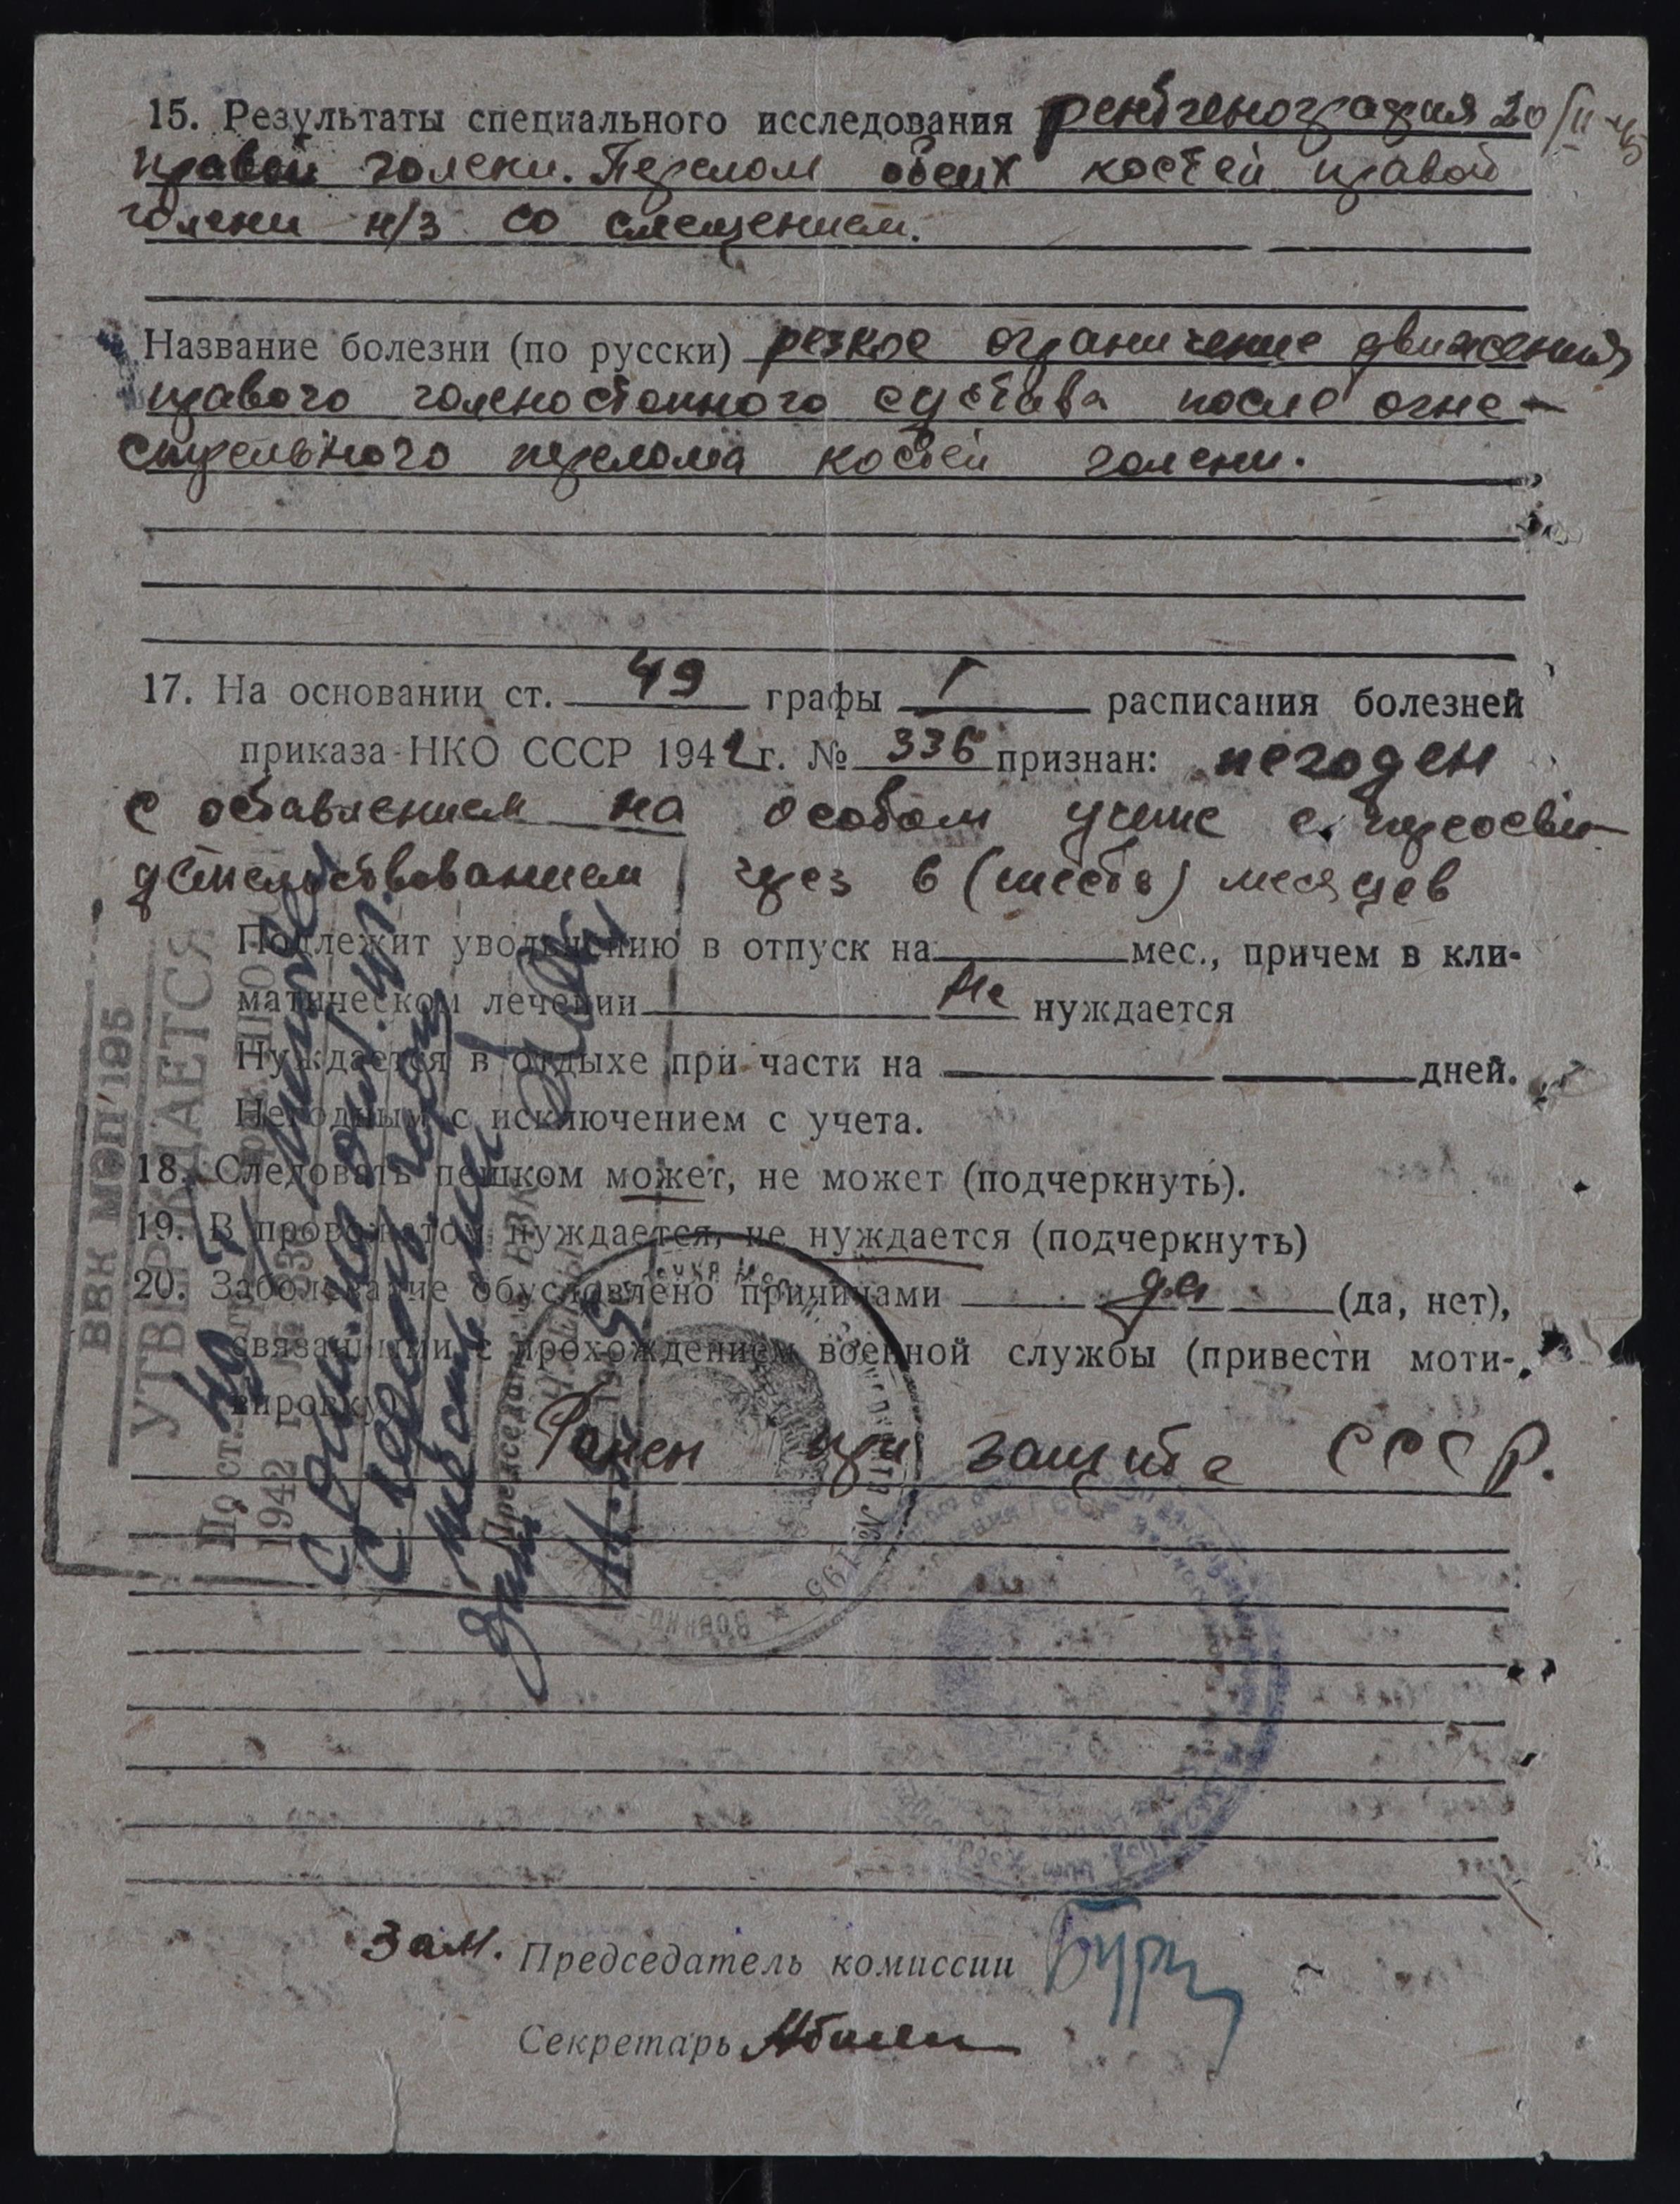 15. Результаты специального исследования рентгенография 20/II-45
правой голени. Перелом обеих костей правой
голени н/з со смещением.
Название болезни (по русски) резкое ограничение движения
правого голеностопного сустава после огне-
стрельного перелома костей голени.
17. На основании ст. 49 графы I расписания болезней
приказа НКО СССР 1942 г. № 336 признан: негоден
с оставлением на особом учете с переосви-
детельствованием через 6 (шесть) месяцев
Подлежит увольнению в отпуск на мес., причем в кли-
матическом лечении не нуждается
Нуждается в отдыхе при части на дней.
Негодным с исключением с учета.
18. Следовать пешком может, не может (подчеркнуть).
19. В провожатом нуждается, не нуждается (подчеркнуть)
20. Заболевание обусловлено причинами да (да, нет),
связанными с прохождением военной службы (привести моти-
вировку)
Ранен при защите СССР.
ВВК МЭП'195
УТВЕРЖДАЕТСЯ
По ст. 49
1942 г. № 336
Председатель ВВК
ЧЛЕНЫ
№ 195
ВОЕННО-
Зам. Председатель комиссии
Секретарь